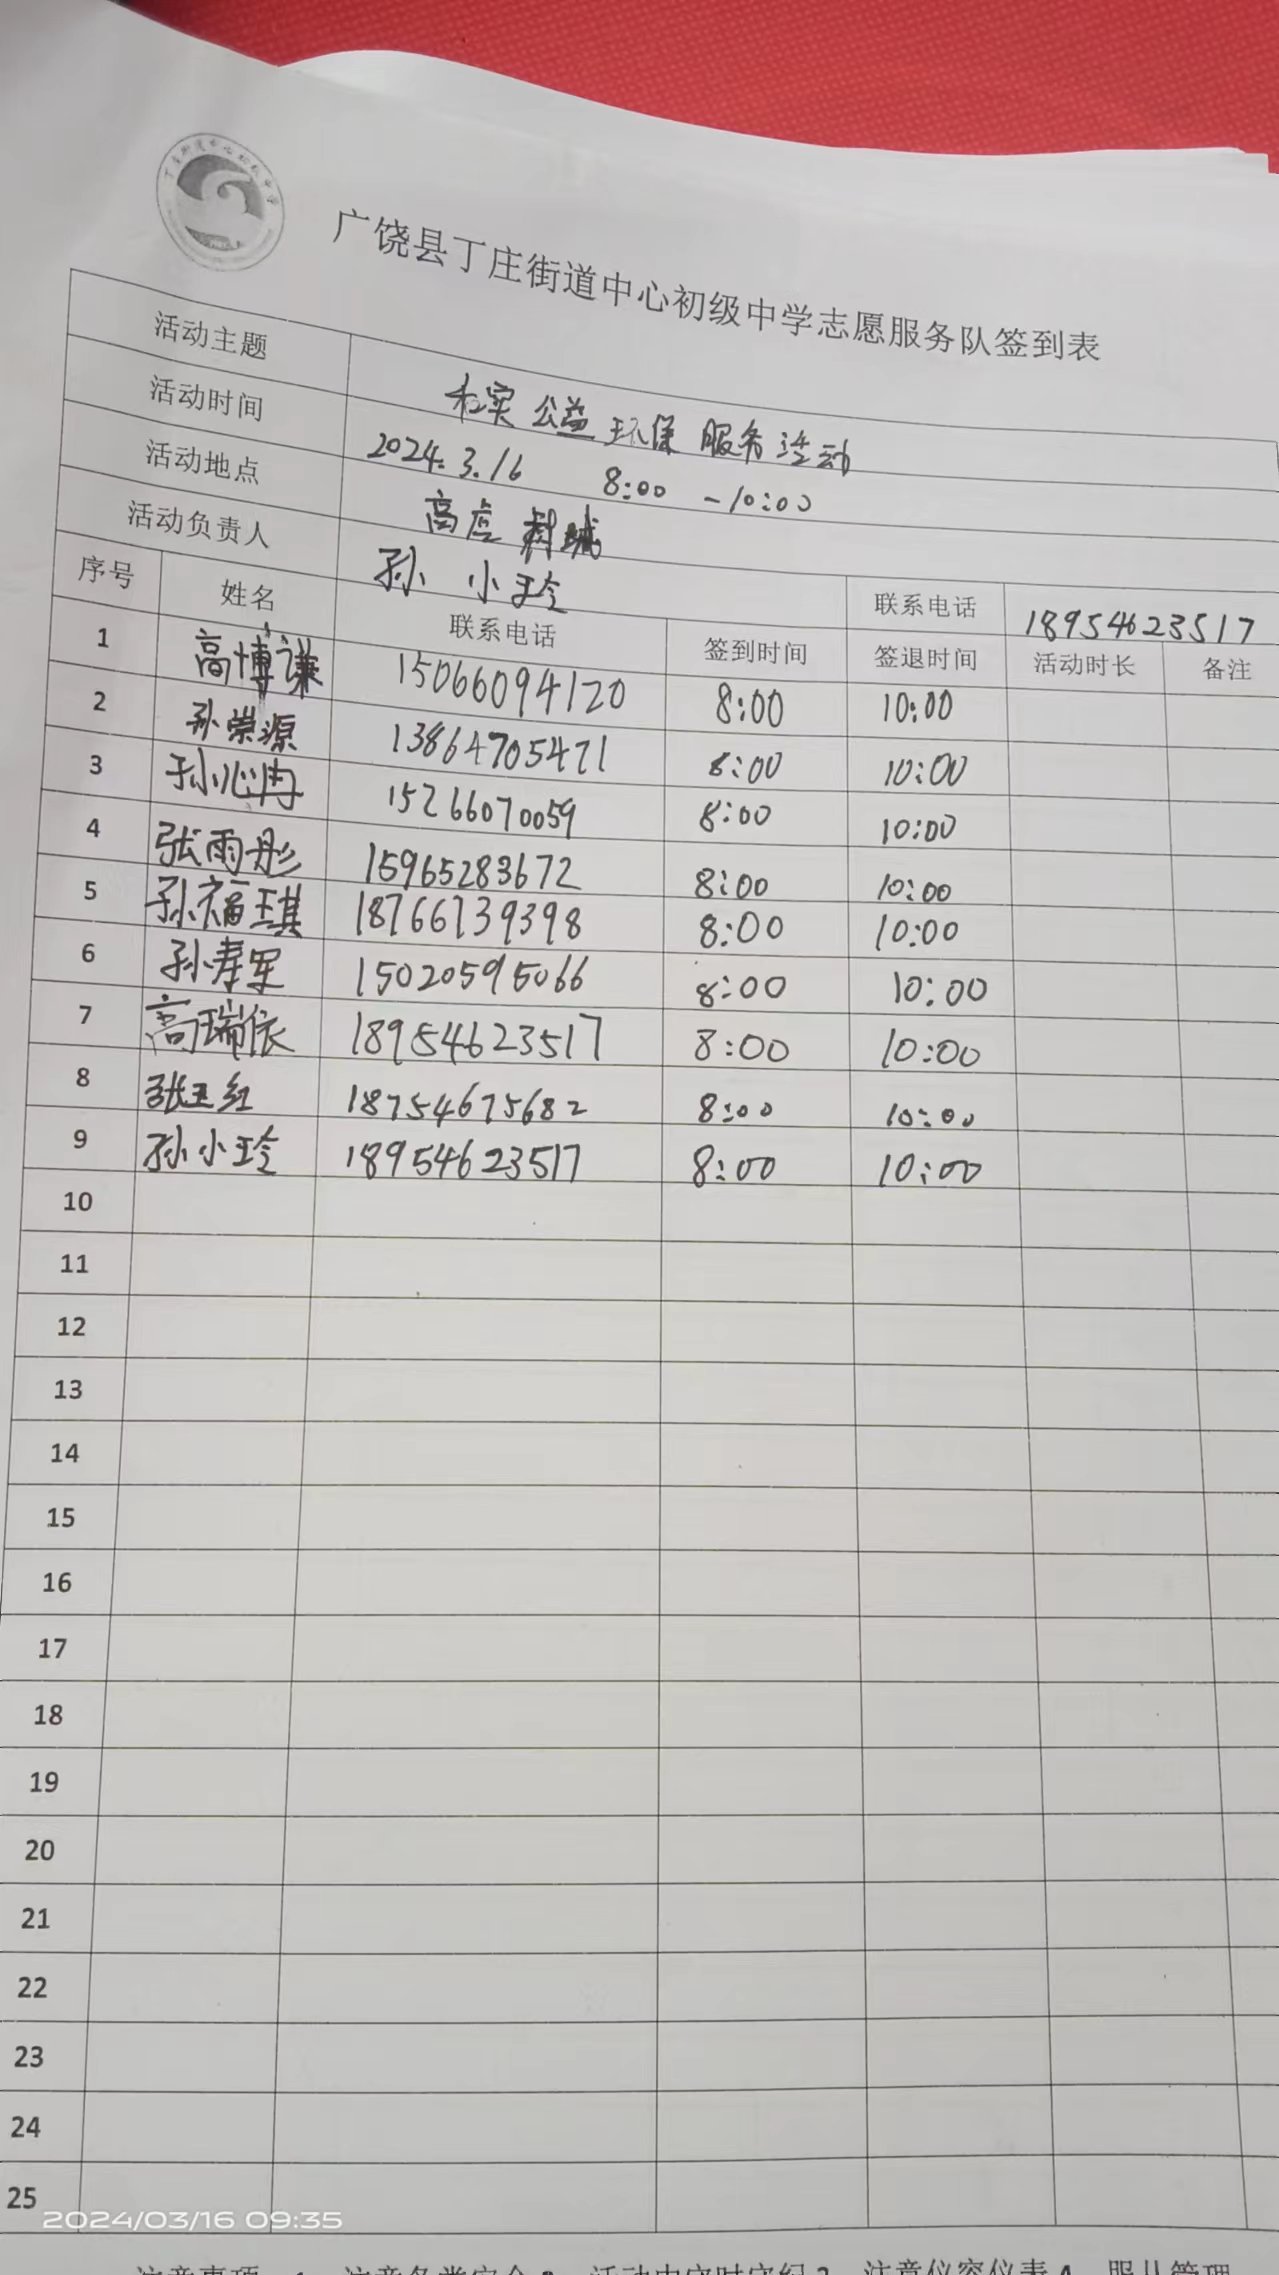 广饶县丁庄街道中心初级中学志愿服务队签到表
活动主题 公益 环保 服务 活动
活动时间 2024.3.16 8:00 -10:00
活动地点 高
活动负责人 孙 小玲 联系电话 18954623517
序号 姓名 联系电话 签到时间 签退时间 活动时长 备注
1 高博谦 15066094120 8:00 10:00
2 孙荣源 13864705471 8:00 10:00
3 孙心冉 15266070059 8:00 10:00
4 张雨彤 15965283672 8:00 10:00
5 孙福琪 18766739398 8:00 10:00
6 孙寿军 15020595066 8:00 10:00
7 高瑞依 18954623517 8:00 10:00
8 张玉红 18754675682 8:00 10:00
9 孙小玲 18954623517 8:00 10:00
10
11
12
13
14
15
16
17
18
19
20
21
22
23
24
25
2024/03/16 09:35